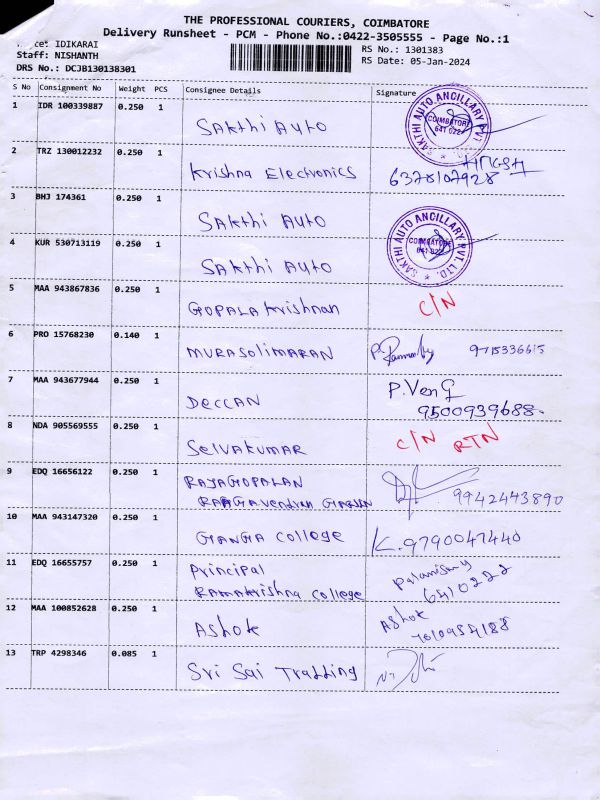 THE PROFESSIONAL COURIERS, COIMBATORE
Delivery Runsheet - PCM - Phone No.:0422-3505555 - Page No.:1
IDIKARAI
Staff: NISHANTH
DRS No.: DCJB130138301
RS No.: 1301383
RS Date: 05-Jan-2024
S No Consignment No Weight PCS Consignee Details Signature
1 IDR 100339887 0.250 1 SAkthi Auto
SAKTHI AUTO ANCILLARY PVT. LTD. COIMBATORE 641 022
2 TRZ 130012232 0.250 1 Krishna Electronics 6378107928
3 BHJ 174361 0.250 1 SAkthi Auto
SAKTHI AUTO ANCILLARY PVT. LTD. COIMBATORE 641 022
4 KUR 530713119 0.250 1 SAkthi Auto
5 MAA 943867836 0.250 1 GOPALA Krishnan C/N
6 PRO 15768230 0.140 1 MURASOliMARAN 9715336615
7 MAA 943677944 0.250 1 DECCAN P.Ven
9500939688.
8 NDA 905569555 0.250 1 SelVAKUMAR C/N RTN
9 EDQ 16656122 0.250 1 RAJAGOPALAN 9942443890
10 MAA 943147320 0.250 1 GANGA College K. 9790047440
11 EDQ 16655757 0.250 1 Principal Palanisamy
Ramakrishna College 6410222
12 MAA 100852628 0.250 1 Ashok Ashok
13 TRP 4298346 0.085 1 Sri Sai Tradding